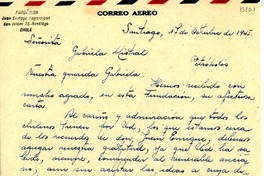 CORREO AEREO
Juan Enrique Lagarrigue
San Isidro 75-Santiago
CHILE
Santiago, 17 de Octubre de 1945.
Señorita
Gabriela Mistral
Petrópolis
Nuestra querida Gabriela:
Hemos recibido con
mucho agrado, en esta Fundación, su afectuosa
carta.
de cariño y admiración que todos los
chilenos tienen por Ud., los de
los recuerdos de don Juan Enrique, debemos
agregar nuestra gratitud, ya que Ud. ha
sabido, siempre, comprender al venerable ancia-
no, aun sin aceptar las ideas a cuyo